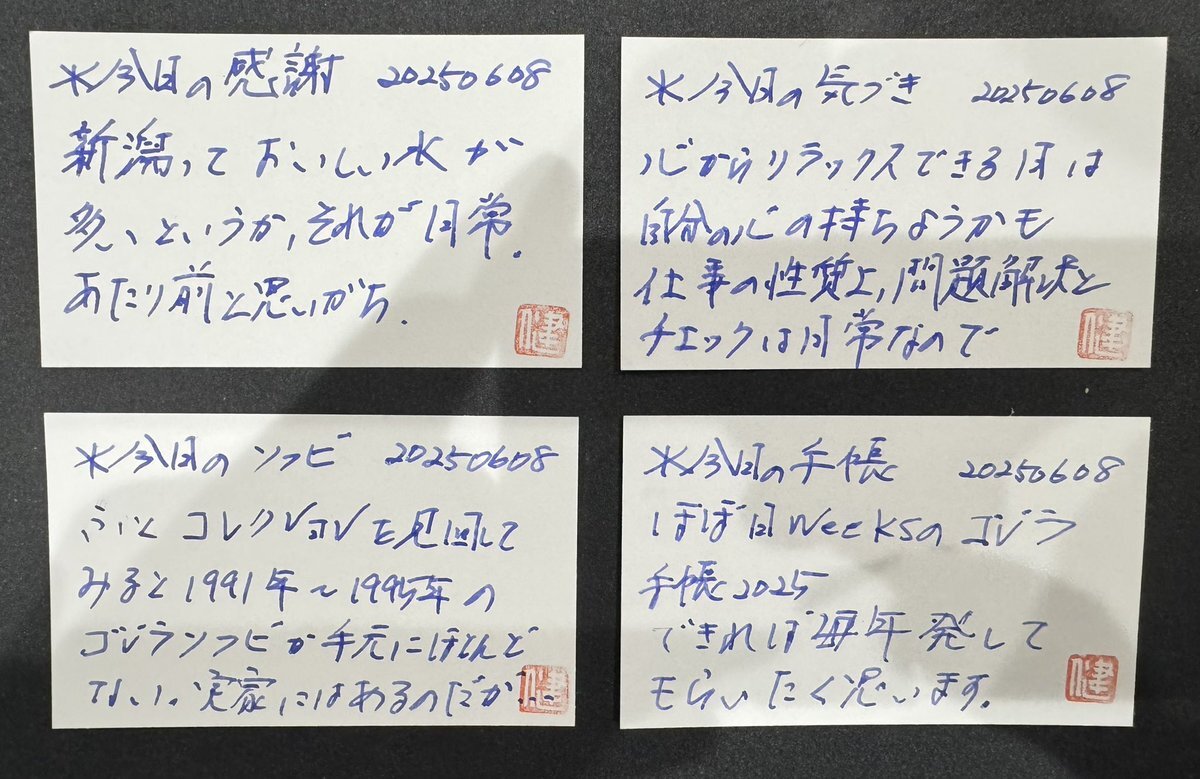 ※今日の感謝 20250608
新潟っておいしい水が
多いというか、それが日常。
あたり前と思いがち。
健
※今日の気づき 20250608
心からリラックスできる日は
自分の心の持ちようかも
仕事の性質上、問題解決と
チェックは日常なので
健
※今日のソフビ 20250608
ふいとコレクションを見回して
みると1991年～1995年の
ゴジラソフビが手元にほとんど
ない。実家にはあるのだが…
健
※今日の手帳 20250608
ほぼ日Weeksのゴジラ
手帳2025
できれば毎年発して
もらいたく思います。
健